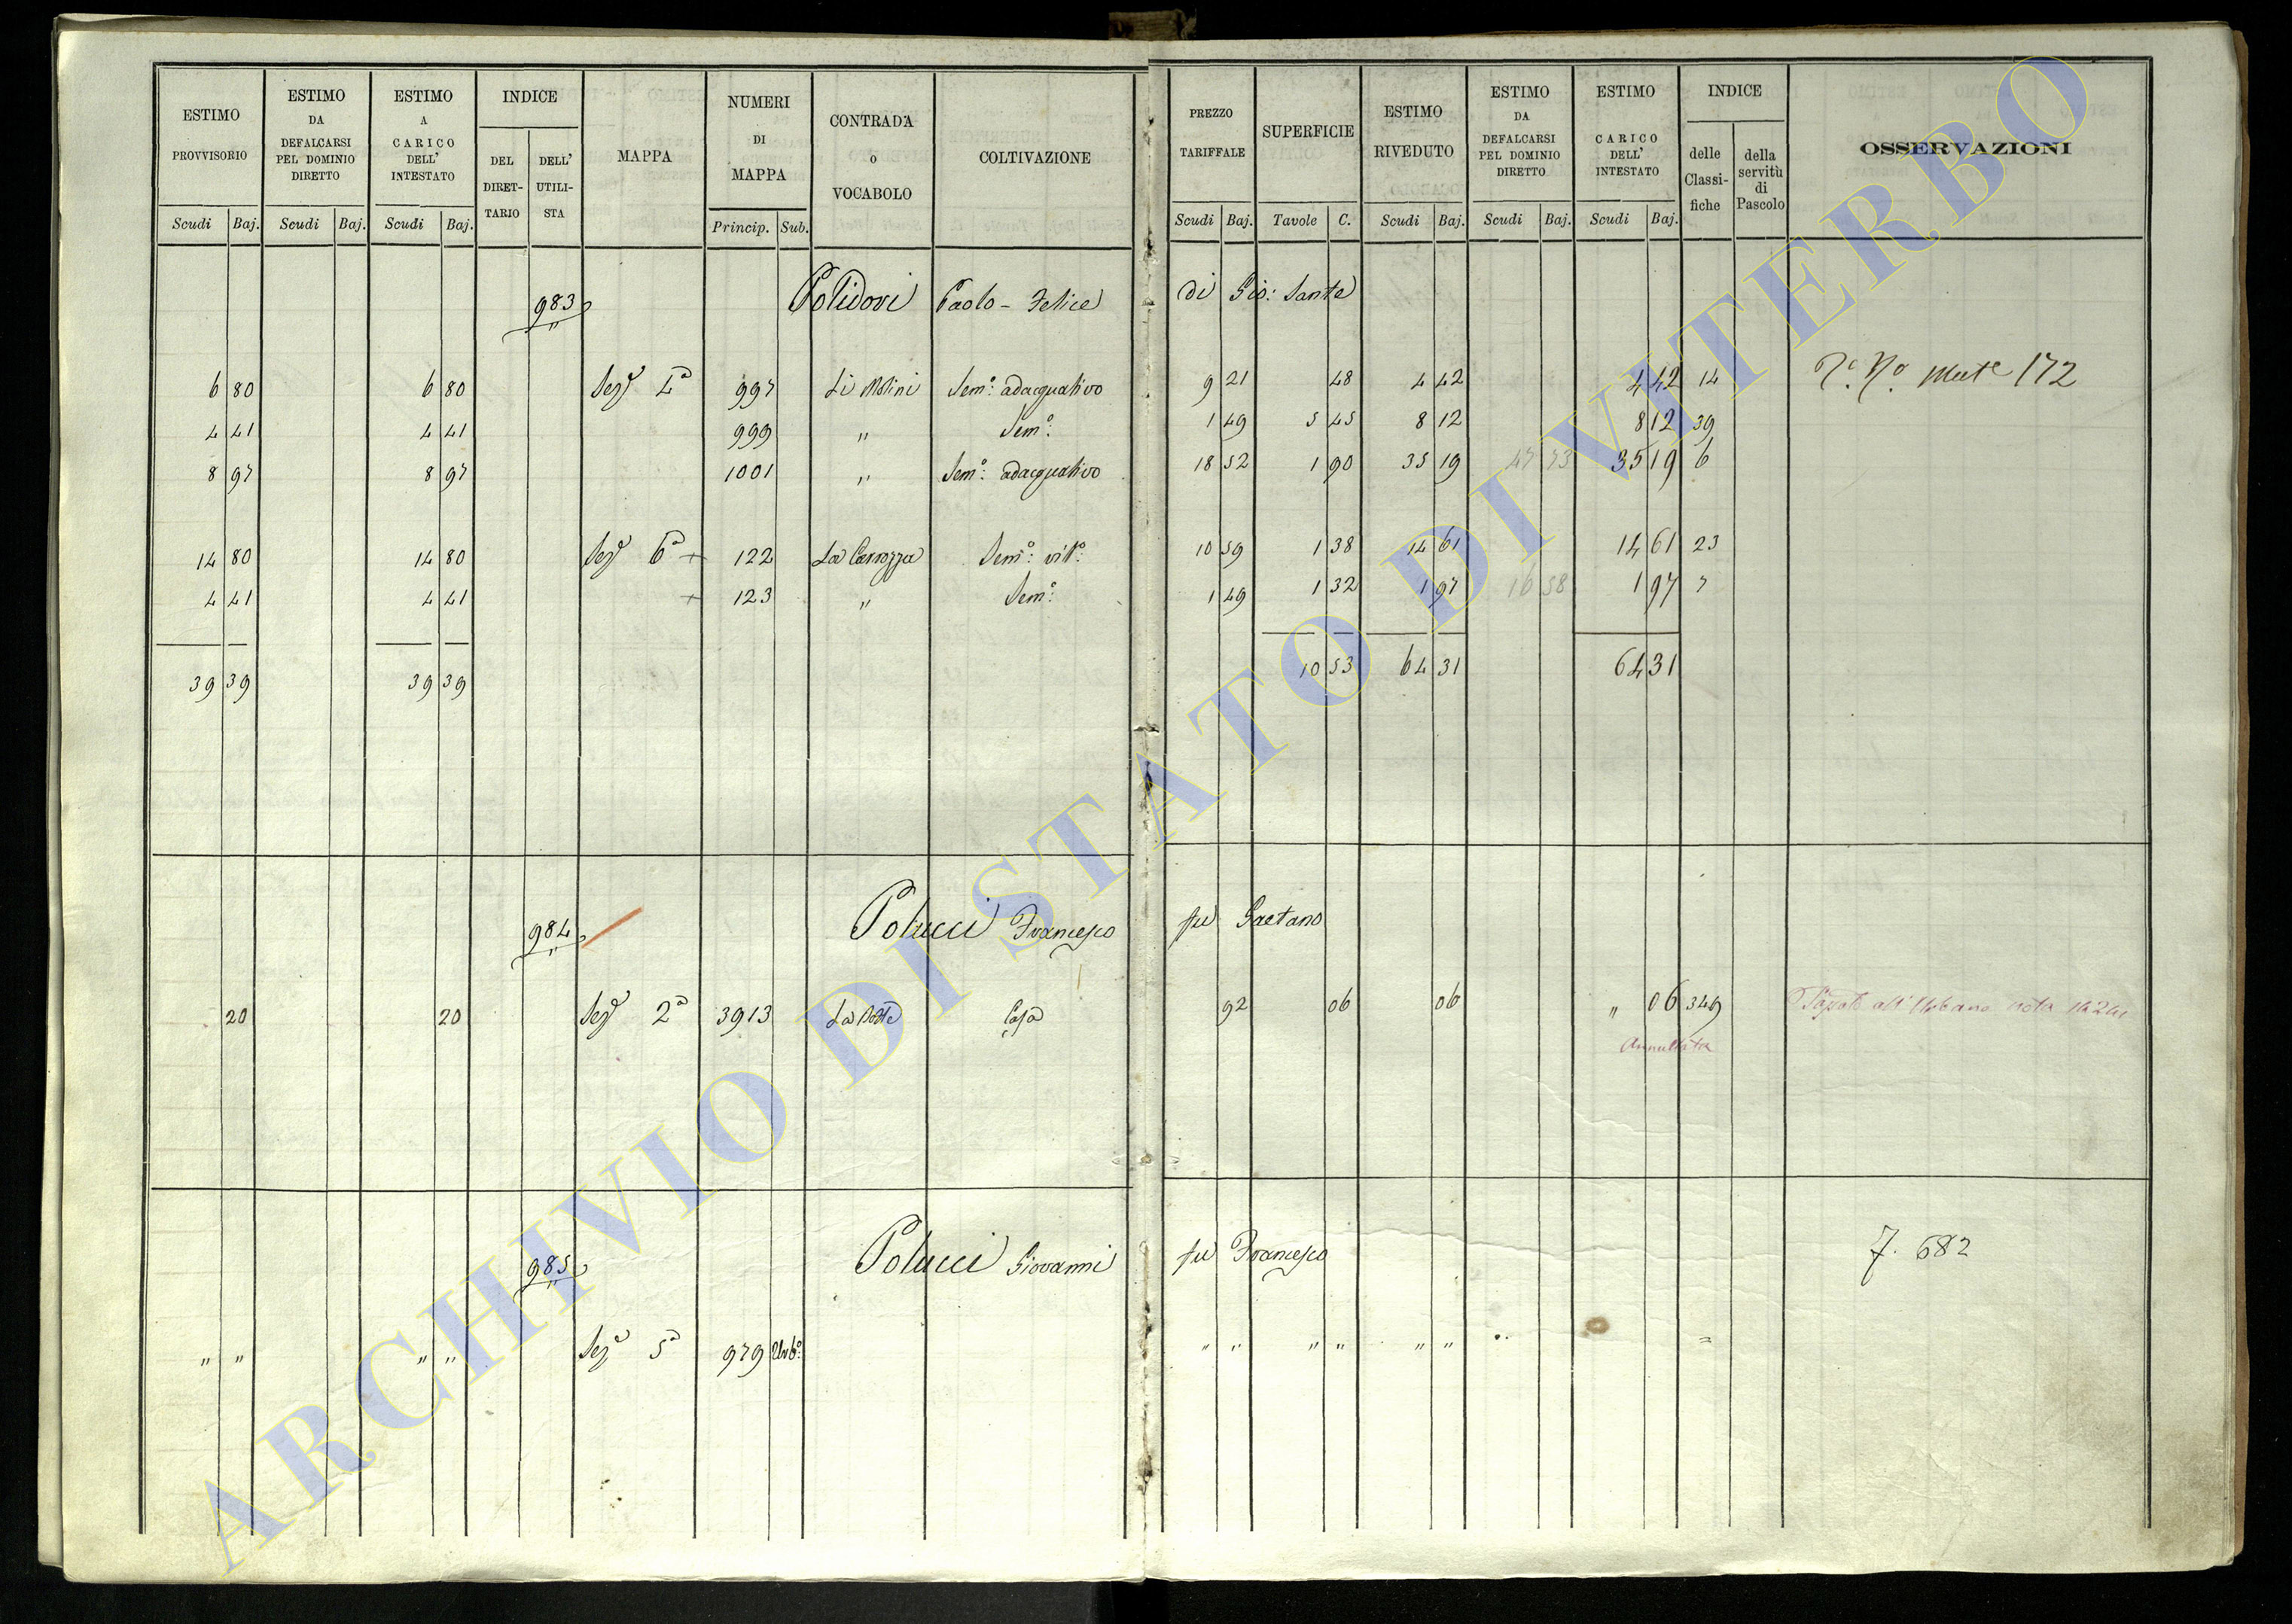 ESTIMO PROVVISORIO Scudi Baj.
ESTIMO DA DEFALCARSI PEL DOMINIO DIRETTO Scudi Baj.
ESTIMO A CARICO DELL' INTESTATO Scudi Baj.
INDICE DEL DIRET- TARIO DELL' UTILI- STA
MAPPA
NUMERI DI MAPPA Princip. Sub.
CONTRADA O VOCABOLO
COLTIVAZIONE
PREZZO TARIFFALE Scudi Baj.
SUPERFICIE Tavole C.
ESTIMO RIVEDUTO Scudi Baj.
ESTIMO DA DEFALCARSI PEL DOMINIO DIRETTO Scudi Baj.
ESTIMO CARICO DELL' INTESTATO Scudi Baj.
INDICE delle Classi- fiche della servitù di Pascolo
OSSERVAZIONI
983 Polidori Paolo - Felice di Gio: Sante
6 80 6 80 Sez.e 4a 997 Li Molini Sem.o: adacquativo 9 21 48 4 42 4 42 14 Mute 172
4 41 4 41 999 " Sem.o: 1 49 5 45 8 12 8 12 39
8 97 8 97 1001 " Sem.o: adacquativo 18 52 1 90 35 19 47 73 35 19 6
14 80 14 80 Sez.e 6a + 122 La Carrozza Sem.o: vit.o: 10 59 1 38 14 61 14 61 23
4 41 4 41 + 123 " Sem.o: 1 49 1 32 1 97 16 58 1 97 7
39 39 39 39 10 53 64 31 64 31
984 Polucci Francesco fu Gaetano
20 20 Sez.e 2a 3913 La Botte Casa 92 06 06 " 06 349 Passato all' Urbano nota
Annullata
985 Polucci Giovanni fu Francesco 7. 682
" " " " Sez.e 5a 979 Urb.o: " " " " " " " =
ARCHIVIO DI STATO DI VITERBO